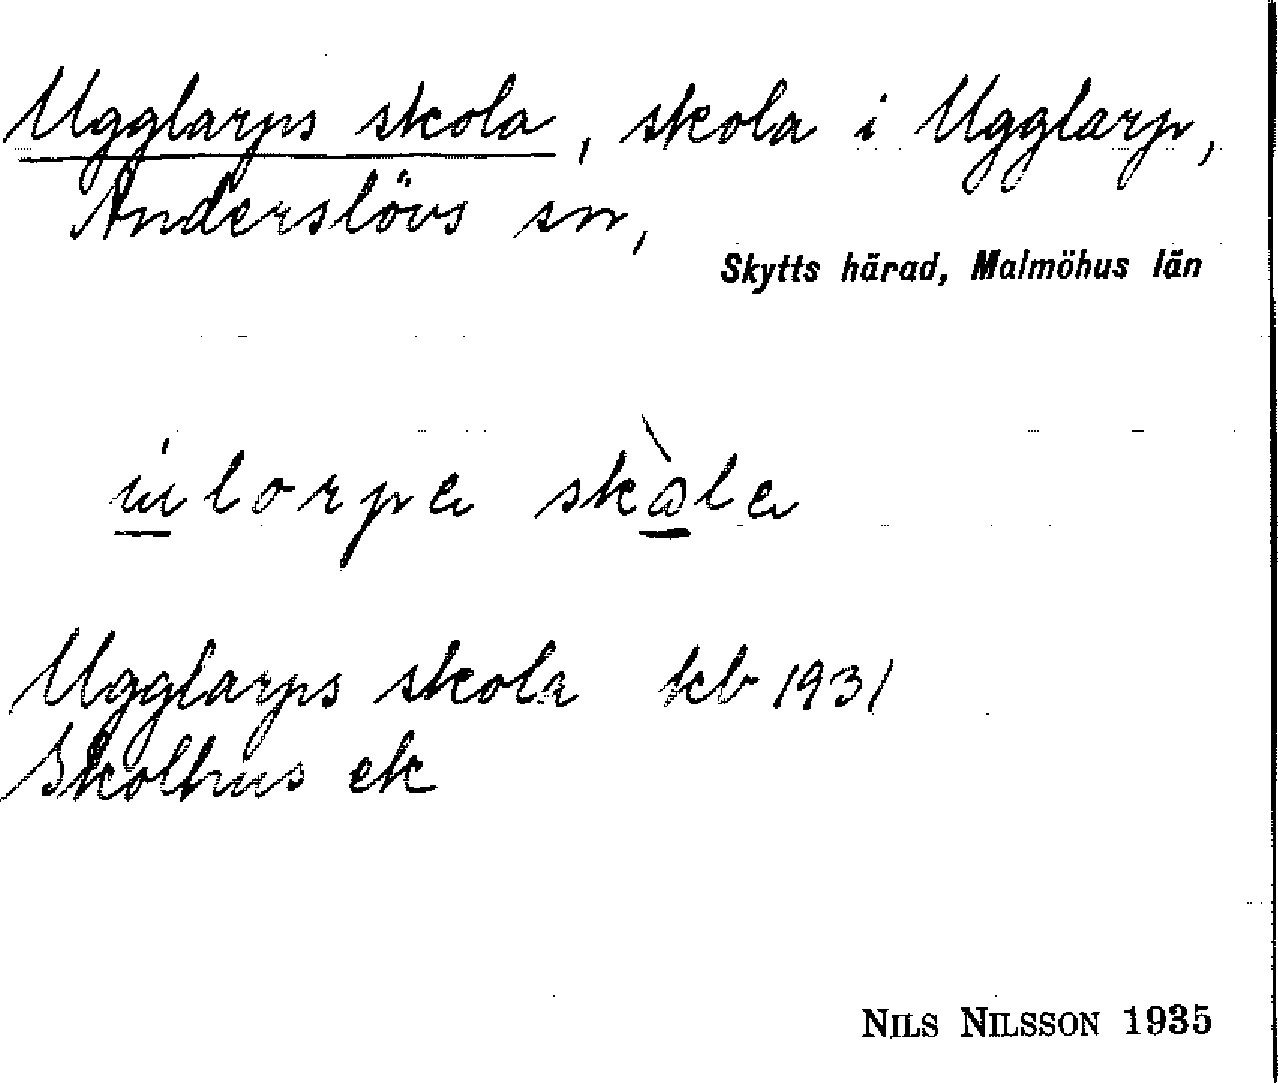 Ugglarps skola, skola i Ugglarp,
Anderslövs sn,
Skytts härad, Malmöhus län
Ugglarps skola kb 1931
Skolhus ek
NILS NILSSON 1935